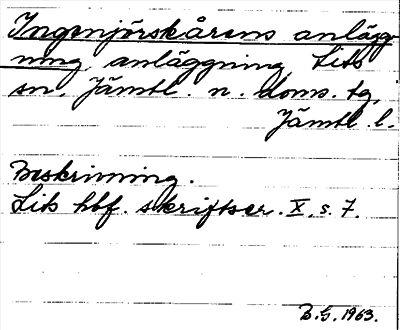 Ingenjörskårens anlägg-
ning, anläggning Lits
sn. Jämtl. n. doms. tg,
Jämtl l.
Beskrivning.
Lits hbf. skriftser. X, s. 7.
B.G. 1963.